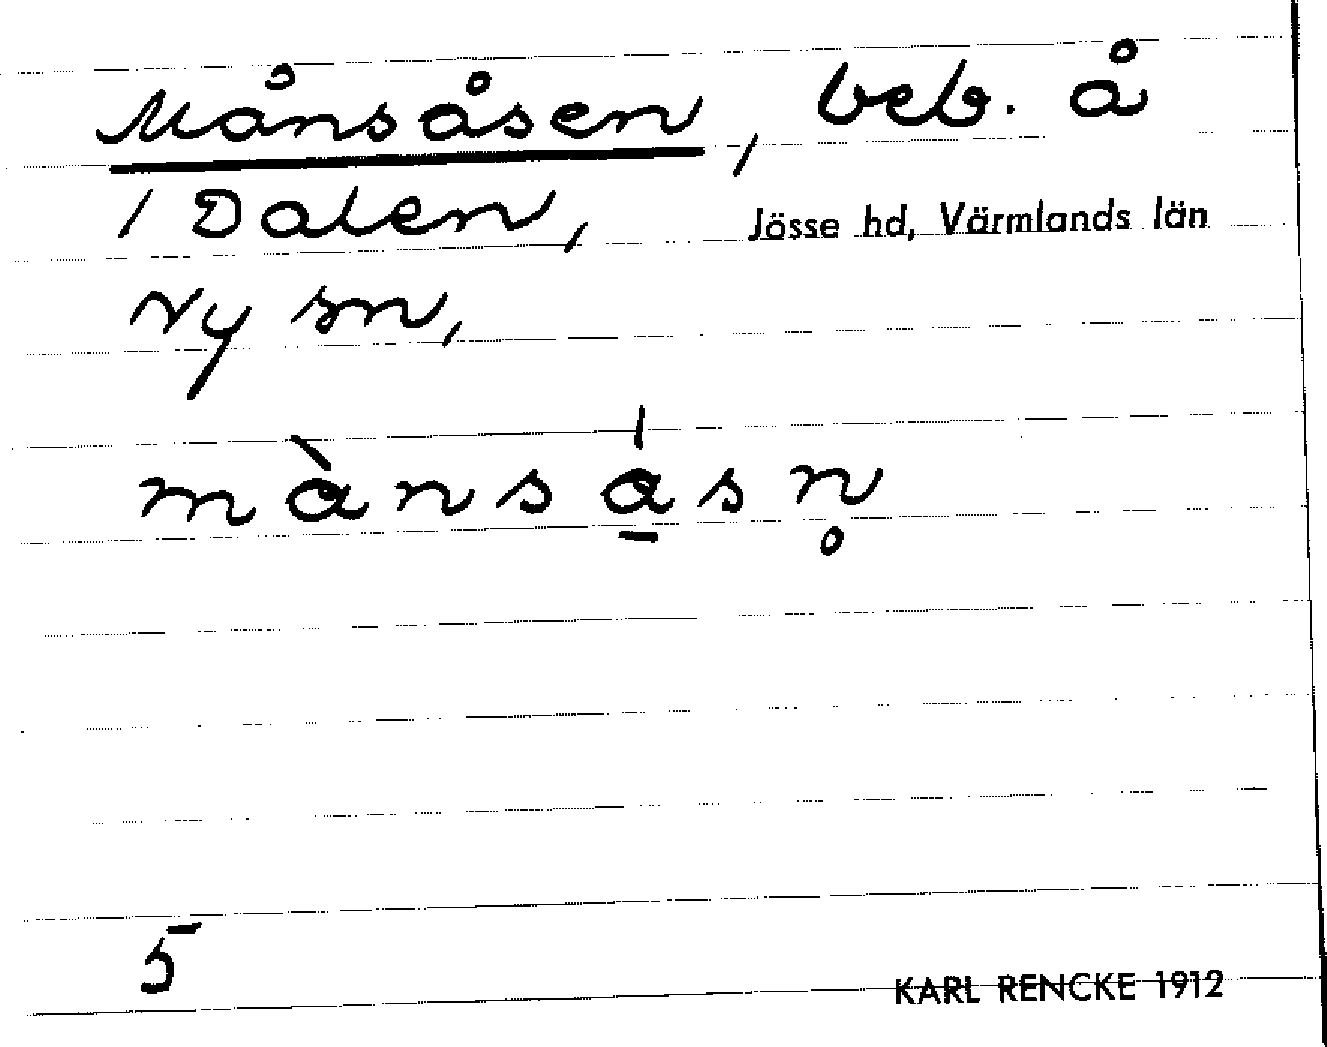 Månsåsen, beb. å
1 Dalen, Jösse hd, Värmlands län
Ny sn,
mànsa̱̍sn̥
5
KARL RENCKE 1912